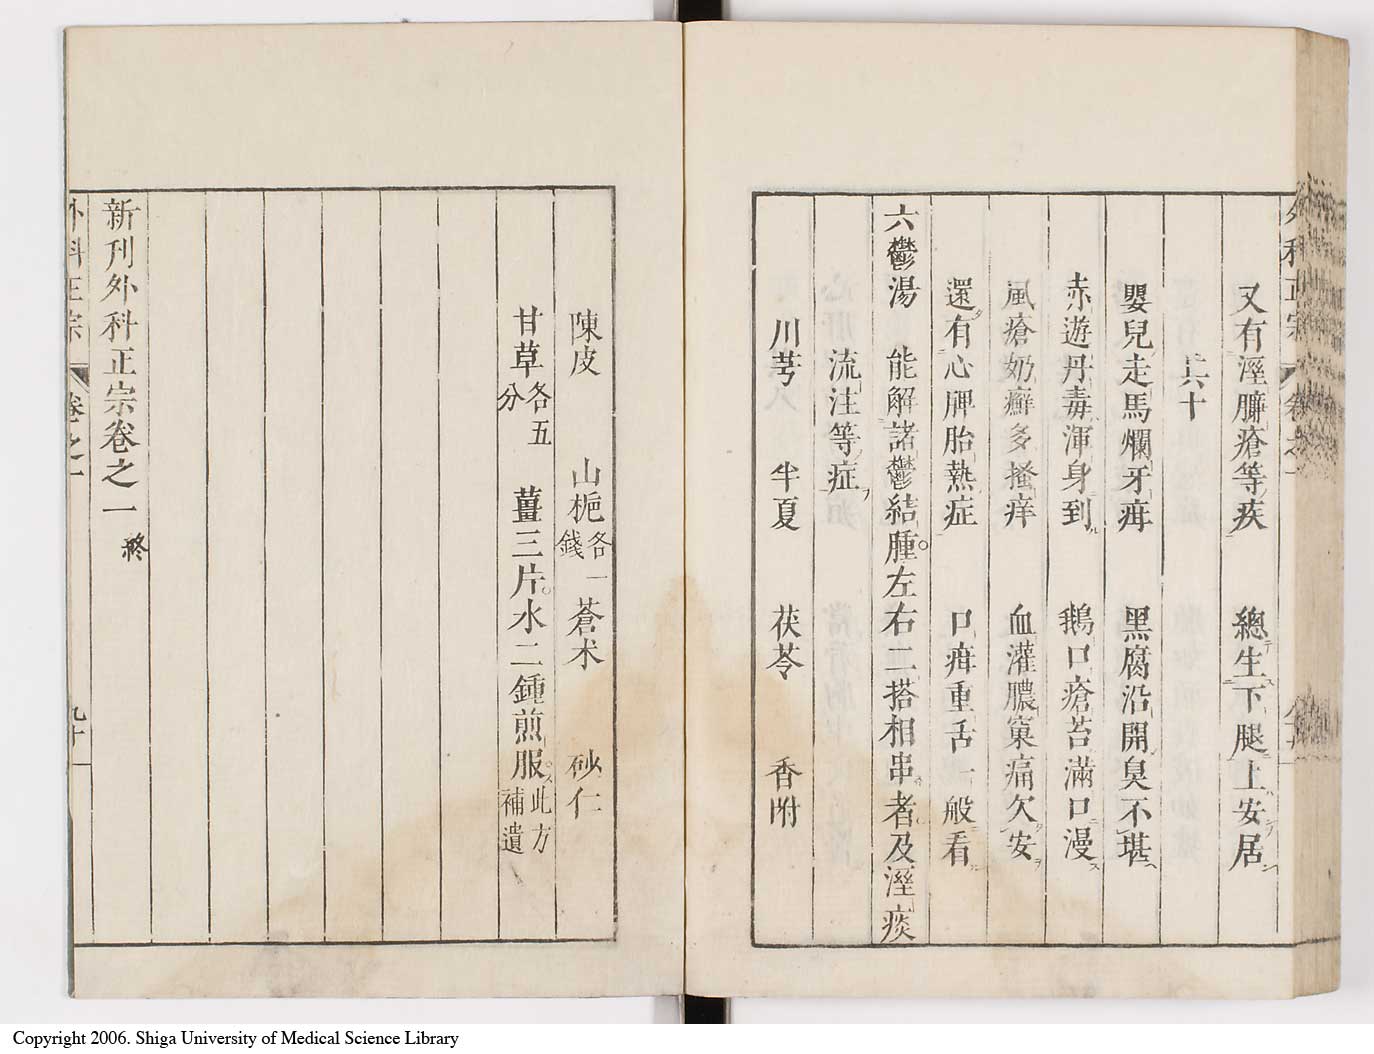 又有溼臁瘡等疾　總生下腿上安居
其六十
嬰兒走馬爛牙疳　黑腐沿開臭不堪
赤遊丹毒渾身到　鵝口瘡苔滿口漫
風瘡奶癬多搔痒　血灌膿窠痛欠安
還有心脾胎熱症　口疳重舌一般看
六鬱湯　能解諸鬱結腫。左右二搭相串者及溼痰
流注等症
川芎　半夏　茯苓　香附
陳皮　山梔各一錢　蒼朮　砂仁
甘草各五分　薑三片。水二鍾煎服。此方補遺
新刊外科正宗卷之一終
外科正宗　卷之一　九十一
Copyright 2006. Shiga University of Medical Science Library